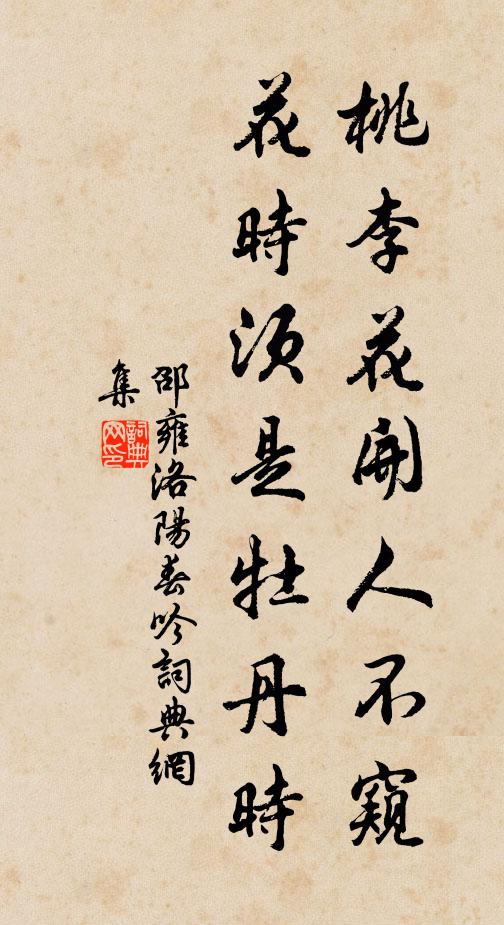 桃李花開人不窺
花時須是牡丹時
邵雍洛陽春吟詞典網
集
詞典
网印